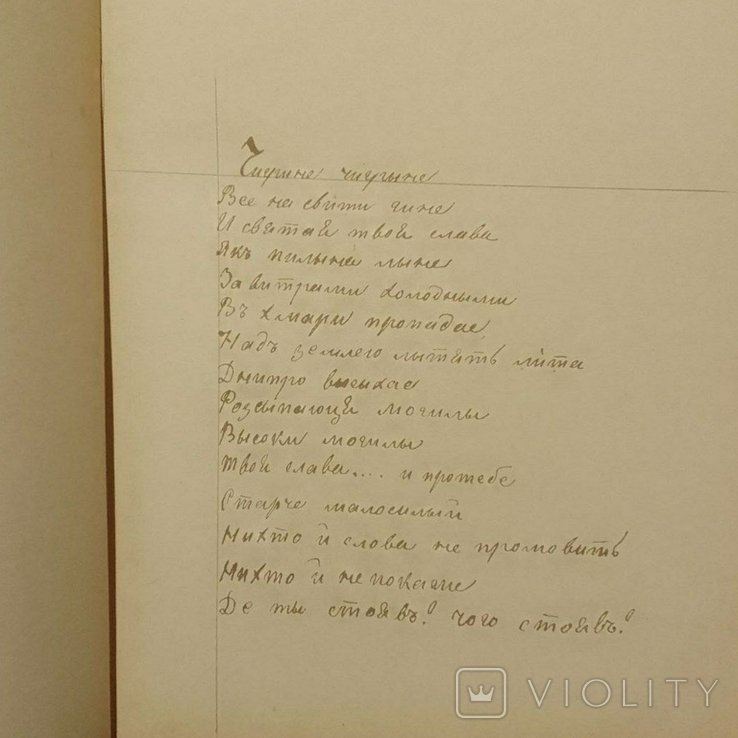 Чигрине чигрыне
Все на свити гине
И святая твоя слава
Якъ пилына лыне
За витрами холодными
Въ хмари пропадае
Надъ землею лытять лита
Днипро высыхае
Розсыпающя могилы
Высоки могилы
Твоя слава.... и протебе
Старче малосилый
Нихто й слова не промовить
Нихто й не покаже
Де ты стоявъ! чого стоявъ!
VIOLITY